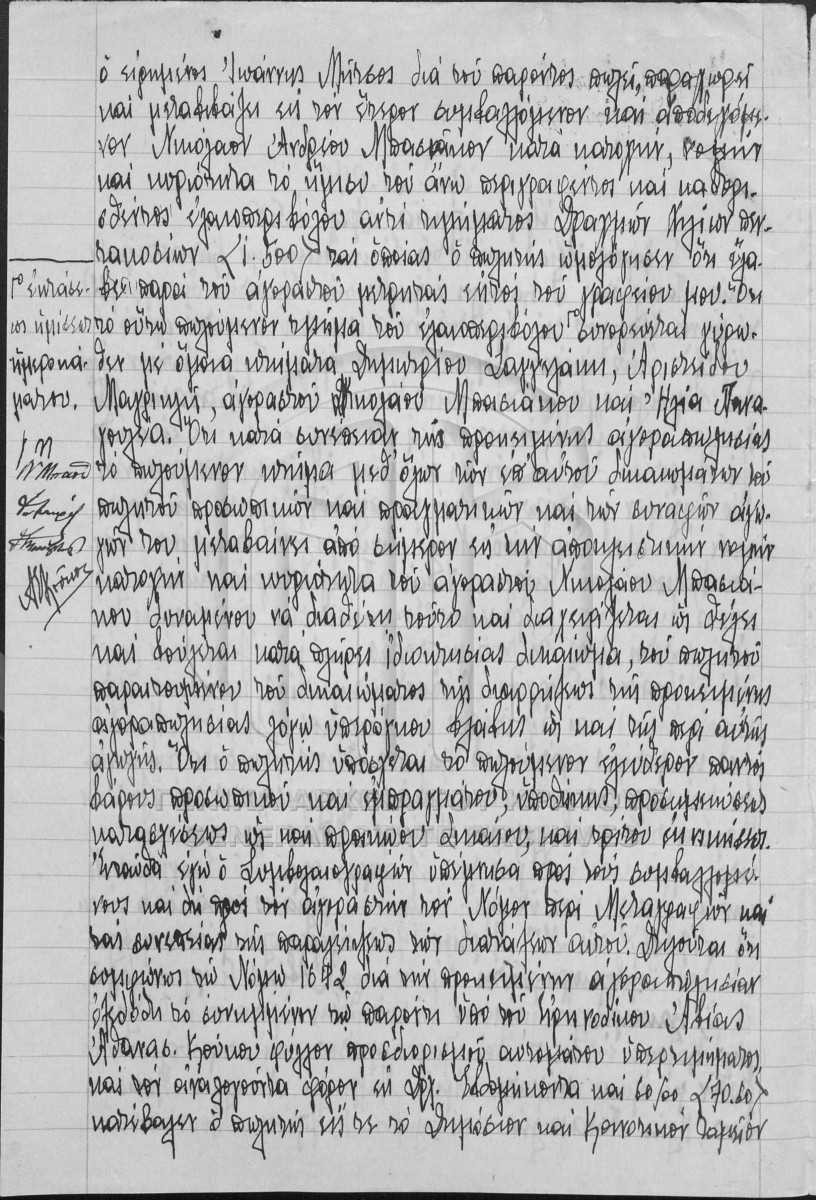 ὁ εἰρημένος Ἰωάννης Μῆτσος διά τοῦ παρόντος πωλεῖ, παραχωρεῖ
καί μεταβιβάζει εἰς τόν ἕτερον συμβαλλόμενον καί ἀποδεχόμε-
νον Νικόλαον Ἀνδρέου Μπασιάκον κατά κατοχήν, νομήν
καί κυριότητα τό ἥμισυ τοῦ ἄνω περιγραφέντος καί καθορι-
σθέντος ἐλαιοπεριβόλου ἀντί τιμήματος δραχμῶν χιλίων πεν-
τακοσίων (1.500) τάς ὁποίας ὁ πωλητής ὡμολόγησεν ὅτι ἔλα-
βε παρά τοῦ ἀγοραστοῦ μετρητάς ἐντός τοῦ γραφείου μου. Ὅτι
τό οὕτω πωλούμενον τμῆμα τοῦ ἐλαιοπεριβόλου συνορεύεται γύρω-
θεν με ὅμοια κτήματα Δημητρίου Σαγγελάκη, Ἀριστείδου
Μαυρικίη, ἀγοραστοῦ Νικολάου Μπασιάκου καί Ἠλία Πανα-
γουλέα. Ὅτι κατά συνέπειαν τῆς προκειμένης ἀγοραπωλησίας
τό πωλούμενον κτῆμα μεθ' ὅλων τῶν ἐπ' αὐτοῦ δικαιωμάτων τοῦ
πωλητοῦ προσωπικῶν καί πραγματικῶν καί τῶν συναφῶν ἀγω-
γῶν του μεταβαίνει ἀπό σήμερον εἰς τήν ἀποκλειστικήν νομήν
κατοχήν καί κυριότητα τοῦ ἀγοραστοῦ Νικολάου Μπασιά-
κου δυναμένου νά διαθέτη τοῦτο καί διαχειρίζεται ὡς θέλει
καί βούλεται κατά πλῆρες ἰδιοκτησίας δικαίωμα, τοῦ πωλητοῦ
παραιτουμένου τοῦ δικαιώματος τῆς διαρρήξεως τῆς προκειμένης
ἀγοραπωλησίας λόγω ὑπερόγκου βλάβης ὡς καί τῆς περί αὐτῆς
ἀγωγῆς. Ὅτι ὁ πωλητής ὑπόσχεται τό πωλούμενον ἐλεύθερον παντός
βάρους προσωπικοῦ καί ἐμπραγμάτου, ὑποθήκης, προσημειώσεως
κατασχέσεως ὡς καί προικώου δικαίου, καί τρίτου ἐκνικήσεως.
Ἐνταῦθα ἐγώ ὁ Συμβολαιογραφῶν ὑπέμνησα πρός τούς συμβαλλομέ-
νους καί δή πρός τόν ἀγοραστήν τόν Νόμον περί Μεταγραφῶν καί
τάς συνεπείας τῆς παραλείψεως τῶν διατάξεων αὐτοῦ. Δηλοῦται ὅτι
συμφώνως τῷ Νόμῳ 1642 διά τήν προκειμένην ἀγοραπωλησίαν
ἐξεδόθη τό συνημμένον τῷ παρόντι ὑπό τοῦ Εἰρηνοδίκου Ἀβίας
Ἀθανασ. Κούκου φύλλον προσδιορισμοῦ αὐτομάτου ὑπερτιμήματος,
καί τόν ἀναλογοῦντα φόρον ἐκ Δρχ. Ἑβδομήκοντα καί 50/00 (70.50)
κατέβαλεν ὁ πωλητής εἴς τε τό Δημόσιον καί Κοινοτικόν Ταμεῖον
Γ ἐκτάσε-
ως ἡμίσεως
ἡμεροκα-
μάτου.